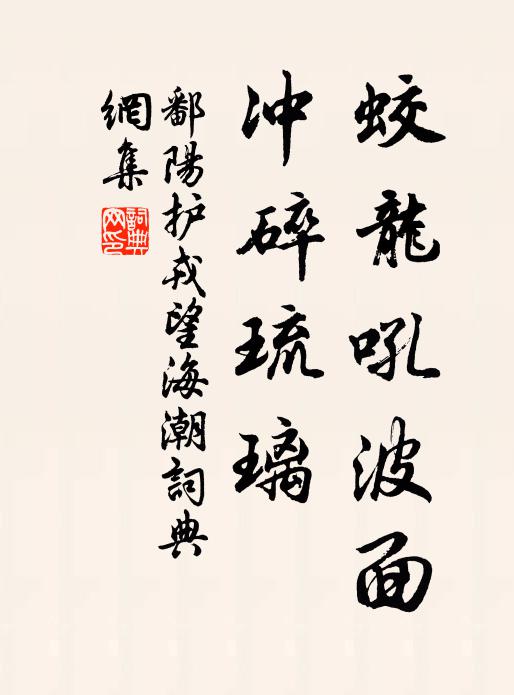 蛟龍吼波面
冲碎琉璃
鄱陽护戎望海潮詞典
網集
詞典
网印